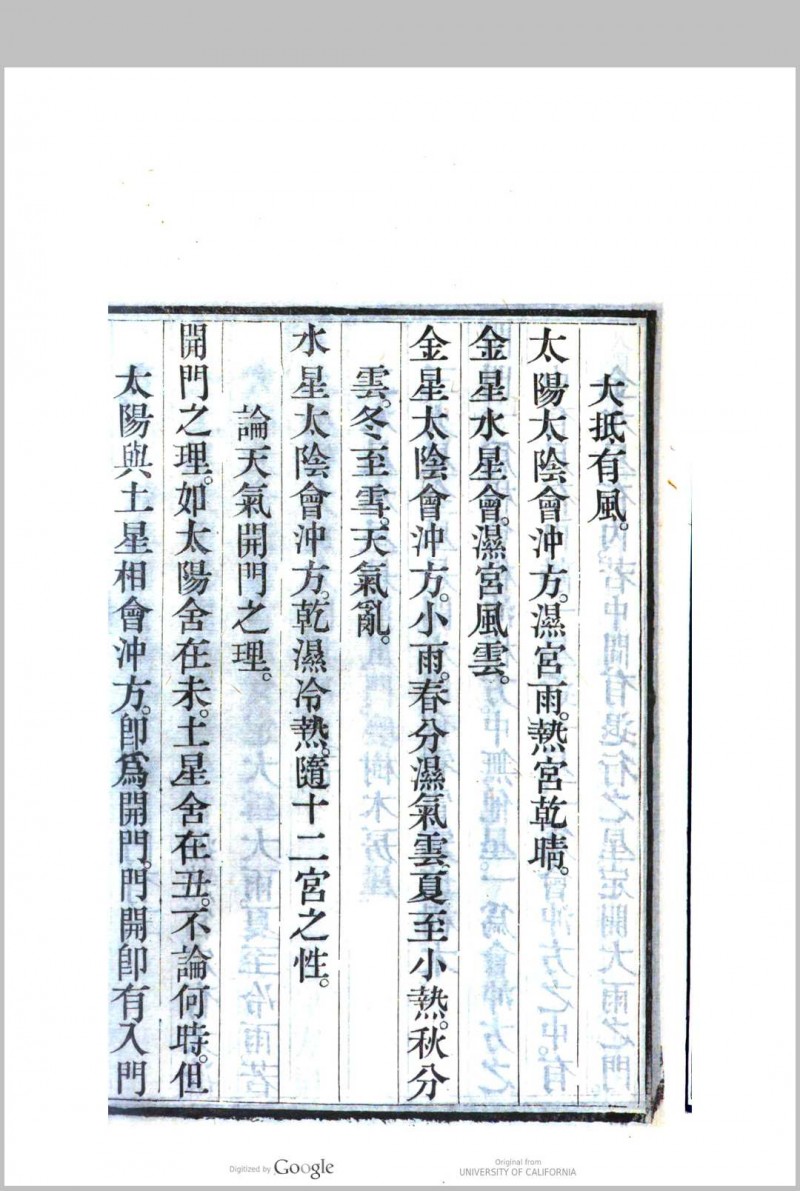 大抵有風。
太陽太陰會沖方。濕宮雨。熱宮乾晴。
金星水星會。濕宮風雲。
金星太陰會沖方。小雨。春分濕氣雲。夏至小熱。秋分
雲。冬至雪。天氣亂。
水星太陰會沖方。乾濕冷熱。隨十二宮之性。
論天氣開門之理。
開門之理。如太陽舍在未。土星舍在丑。不論何時。但
太陽與土星相會沖方。卽爲開門。門開卽有入門
Digitized by Google
Original from
UNIVERSITY OF CALIFORNIA